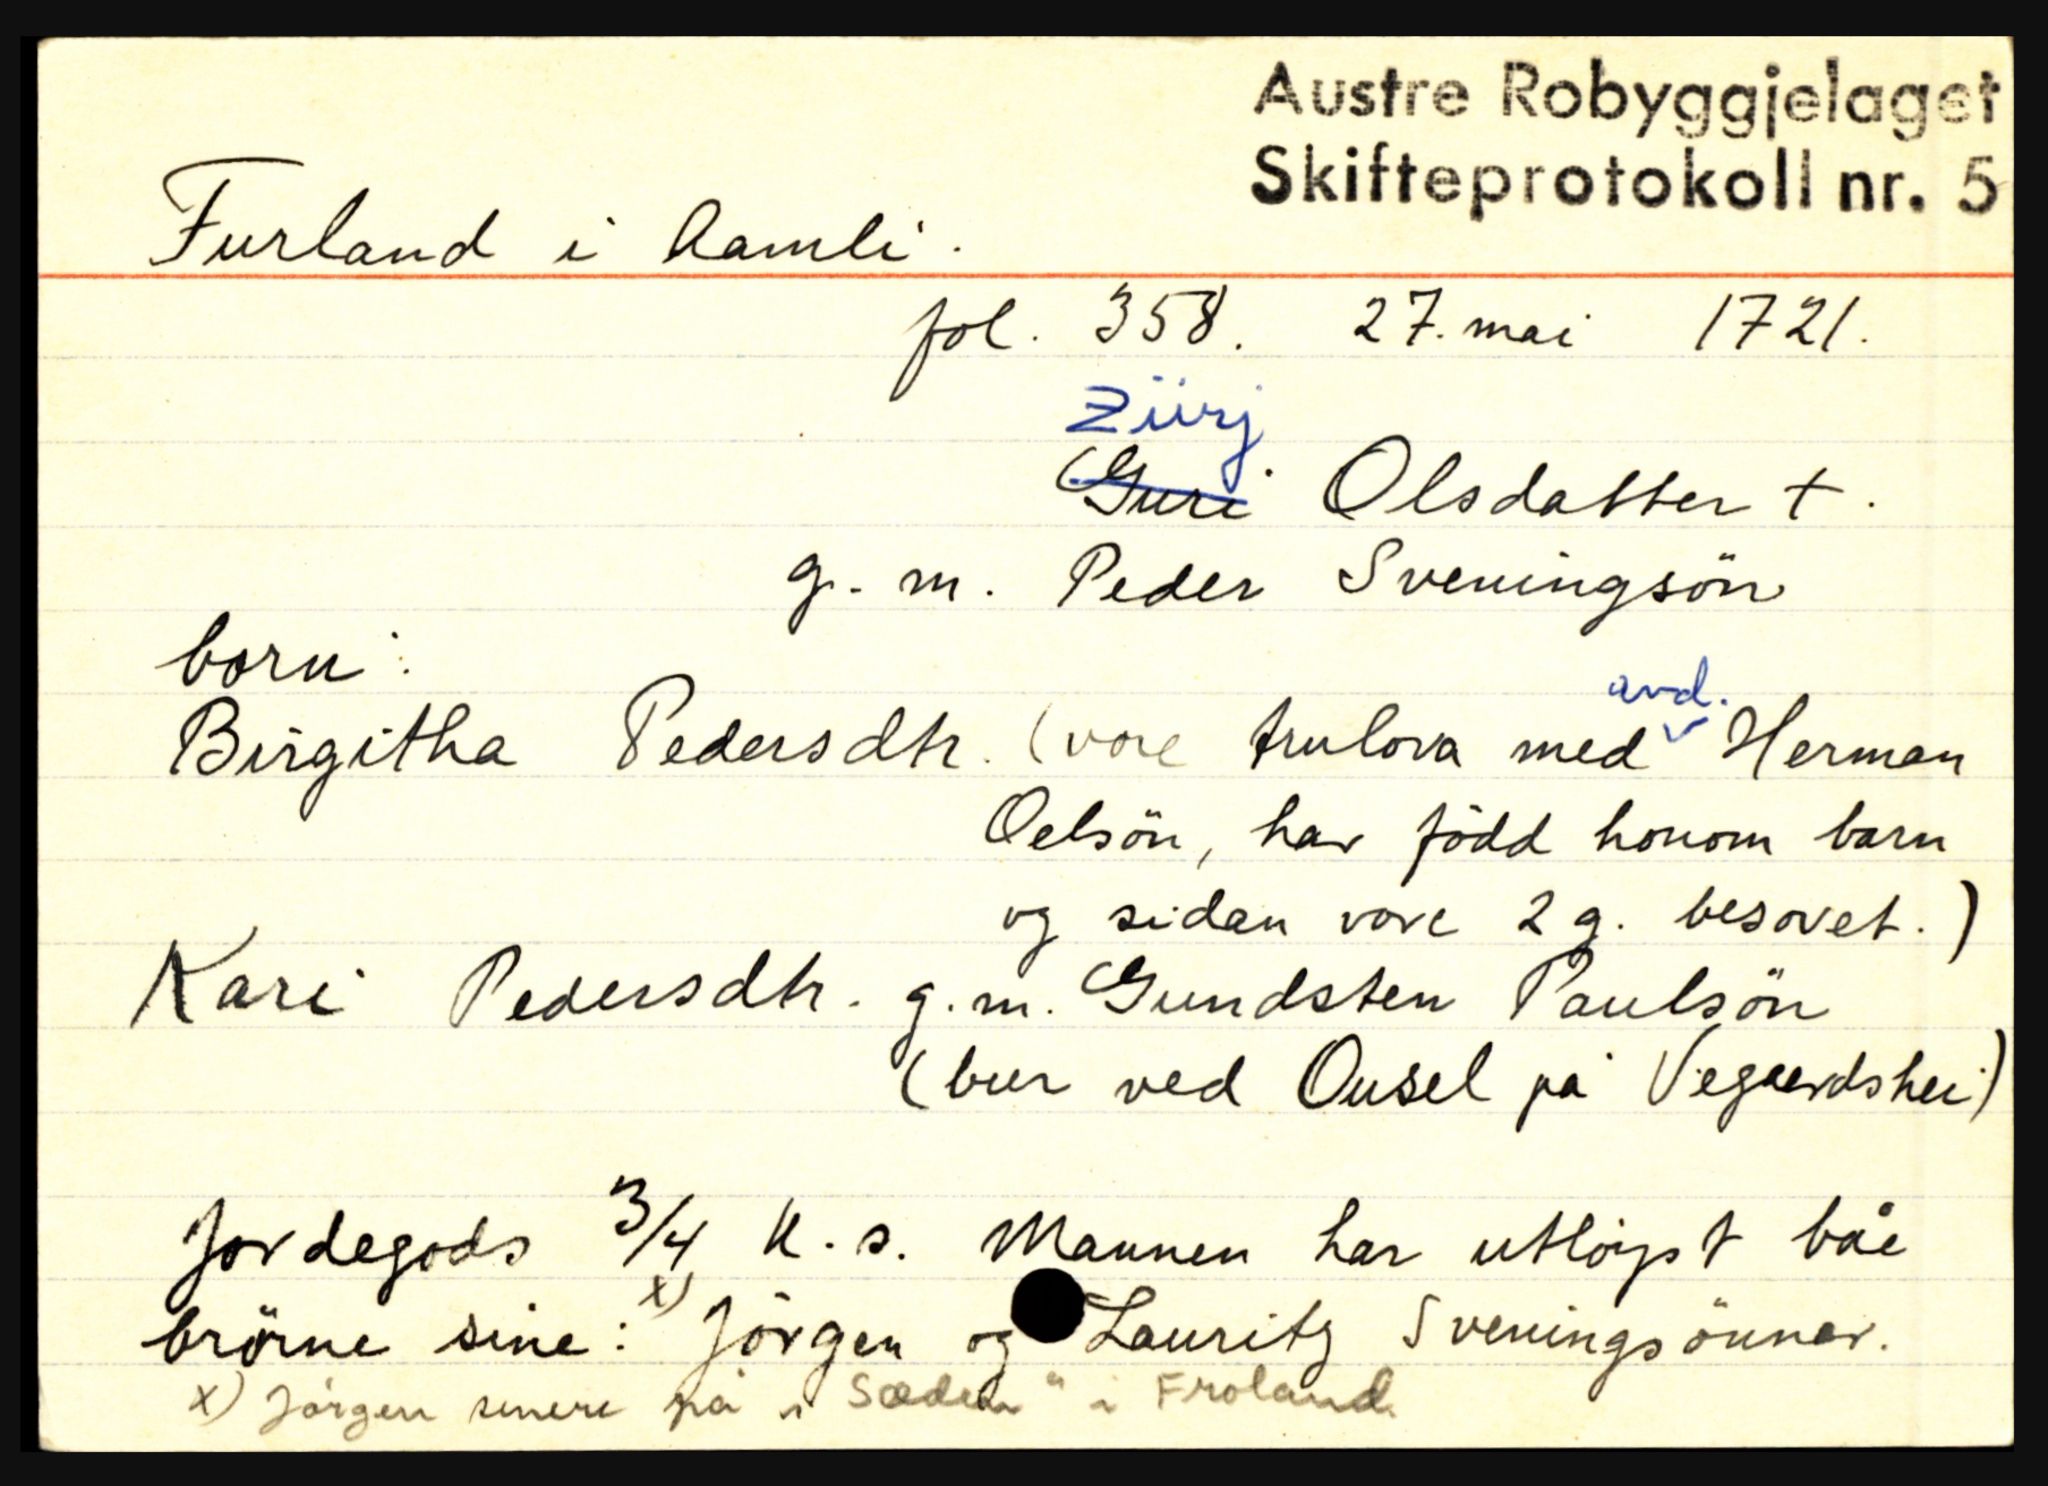 Austre Robyggjelaget
Skifteprotokoll nr. 5
Furland i Aamli.
fol. 358. 27. mai 1721.
Ziirj
Guri Olsdatter †.
g. m. Peder Sveningsön
born:
avd.
Birgitha Pedersdtr. (vore trulova med Herman
Oelsön, har född honom barn
og sidan vore 2 g. besovet.)
Kari Pedersdtr. g. m. Gundsten Paulsön
(bur ved Ousel på Vegaardshei)
Jordegods 3/4 k. s. Mannen har utlöyst båe
brörne sine: x) Jörgen og Lauritz Sveningsönner.
x) Jörgen senere på "Sæden" i Froland.